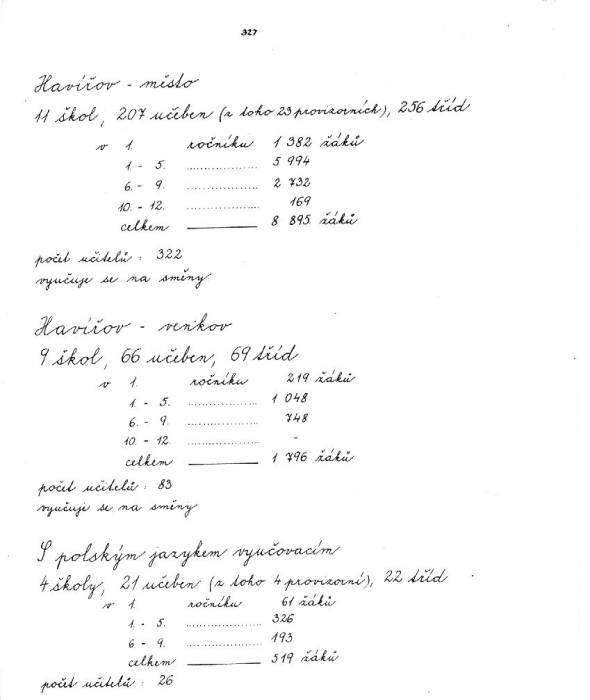 327
Havířov - město
11 škol, 207 učeben (z toho 23 provizorních), 256 tříd
v 1. ročníku 1 382 žáků
1. - 5. .................... 5 994
6. - 9. .................... 2 732
10. - 12. .................... 169
celkem ________ 8 895 žáků
počet učitelů : 322
vyučuje se na směny
Havířov - venkov
9 škol, 66 učeben, 69 tříd
v 1. ročníku 219 žáků
1. - 5. .................... 1 048
6. - 9. .................... 748
10. - 12. .................... -
celkem ________ 1 796 žáků
počet učitelů : 83
vyučuje se na směny
S polským jazykem vyučovacím
4 školy, 21 učeben (z toho 4 provizorní), 22 tříd
v 1. ročníku 61 žáků
1. - 5. .................... 326
6. - 9. .................... 193
celkem ________ 519 žáků
počet učitelů : 26